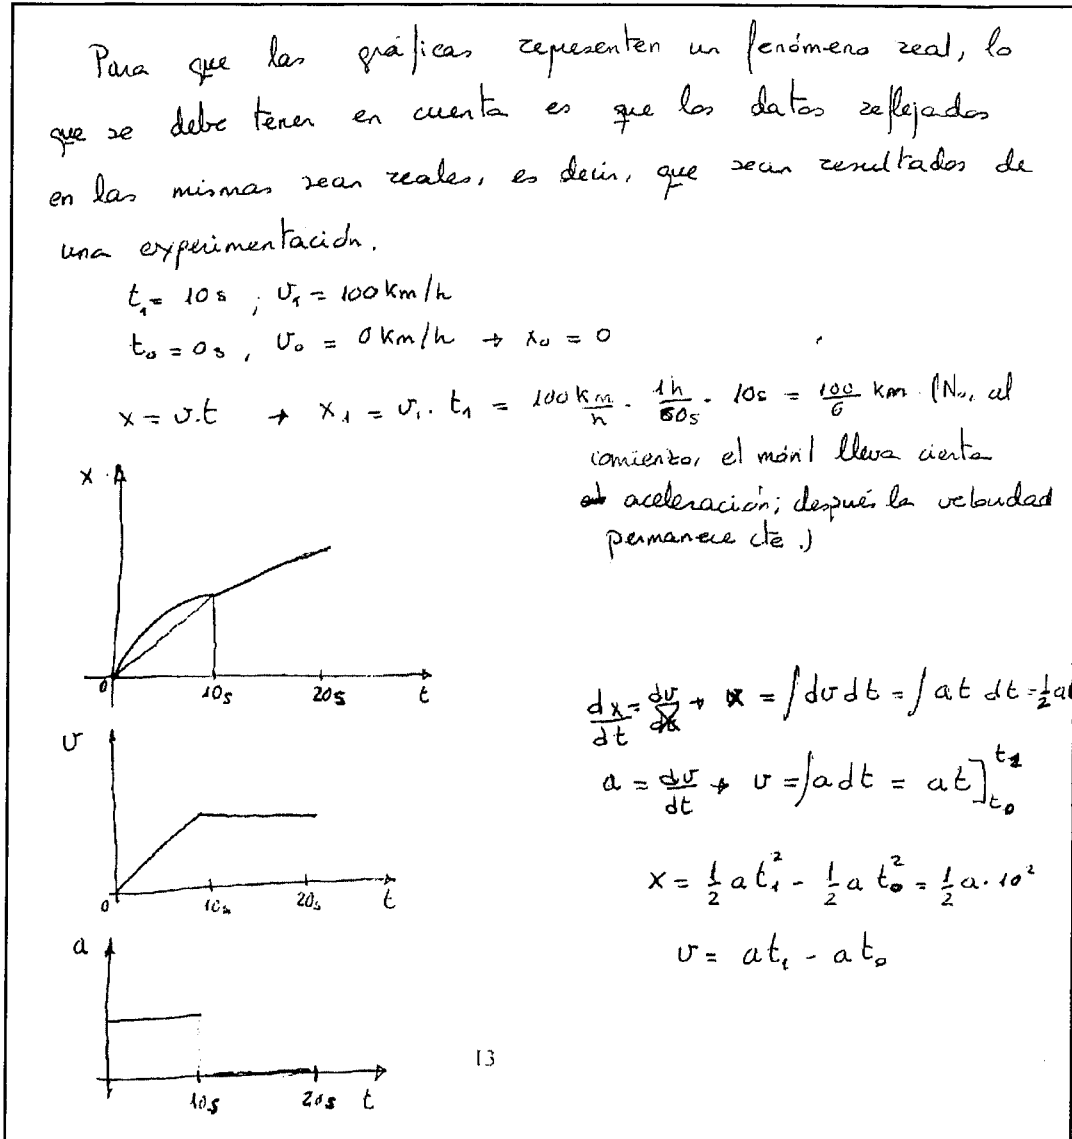 Para que las gráficas representen un fenómeno real, lo
que se debe tener en cuenta es que los datos reflejados
en las mismas sean reales, es decir, que sean resultados de
una experimentación.
t₁ = 10 s ; v₁ = 100 km/h
t₀ = 0 s , v₀ = 0 km/h → x₀ = 0
x = v.t → x₁ = v₁ . t₁ = 100 km/h . 1h/60s . 10s = 100/6 km (No, al
comienzo, el móvil lleva cierta
aceleración; después la velocidad
permanece cte.)
x
0 10s 20s t
dx/dt = dv/dx → x = ∫dv dt = ∫ at dt = ½ at
v
a = dv/dt → v = ∫a dt = at]t₀ t₁
0 10s 20s t
x = ½ a t₁² - ½ a t₀² = ½ a . 10²
v = at₁ - at₀
a
10s 20s t
13